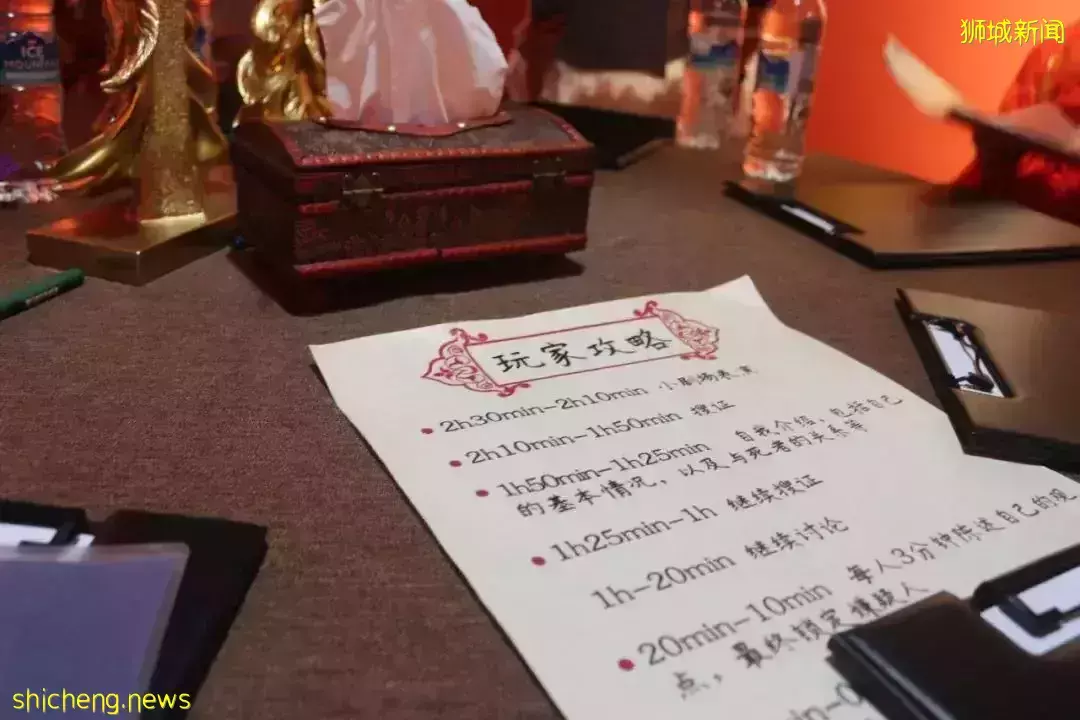 狮城新闻
ICE
MOUNTAIN
玩家攻略
2h30min-2h10min 小剧场表演
2h10min-1h50min 搜证
1h50min-1h25min 自我介绍，包括自己
的基本情况，以及与死者的关系等
1h25min-1h 继续搜证
1h-20min 继续讨论
20min-10min 每人3分钟陈述自己的观
点，最终锁定嫌疑人
shicheng.news